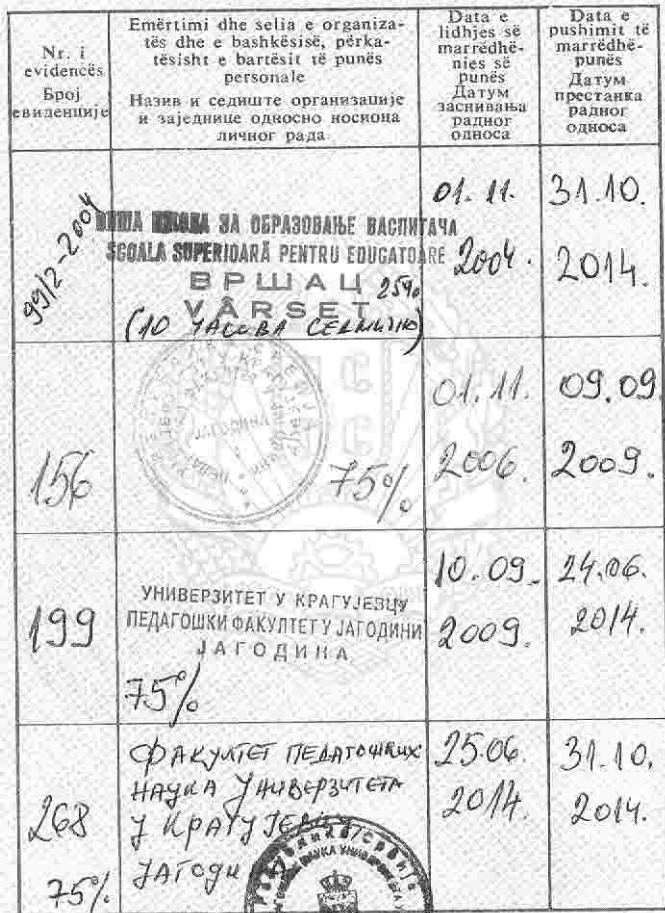 Nr. i
evidencës
Број
евиденције
Emërtimi dhe selia e organiza-
tës dhe e bashkësisë, përka-
tësisht e bartësit të punës
personale
Назив и седиште организације
и заједнице односно носиоца
личног рада
Data e
lidhjes së
marrëdhë-
nies së
punës
Датум
заснивања
радног
односа
Data e
pushimit të
marrëdhë-
punës
Датум
престанка
радног
односа
99/2-2004
ВИША ШКОЛА ЗА ОБРАЗОВАЊЕ ВАСПИТАЧА
ȘCOALA SUPERIOARĂ PENTRU EDUCATOARE
ВРШАЦ 25%
VÂRSET
(10 ЧАСОВА СЕДМИЧНО)
01. 11.
2004.
31.10.
2014.
156
ЈАГОДИНА
75%
01.11.
2006.
09.09
2009.
199
УНИВЕРЗИТЕТ У КРАГУЈЕВЦУ
ПЕДАГОШКИ ФАКУЛТЕТ У ЈАГОДИНИ
ЈАГОДИНА
75%
10.09.
2009.
24.06.
2014.
268
75%
ФАКУЛТЕТ ПЕДАГОШКИХ
НАУКА УНИВЕРЗИТЕТА
У КРАГУЈЕВЦУ
ЈАГОДИ
Република Србија
25.06.
2014.
31.10.
2014.